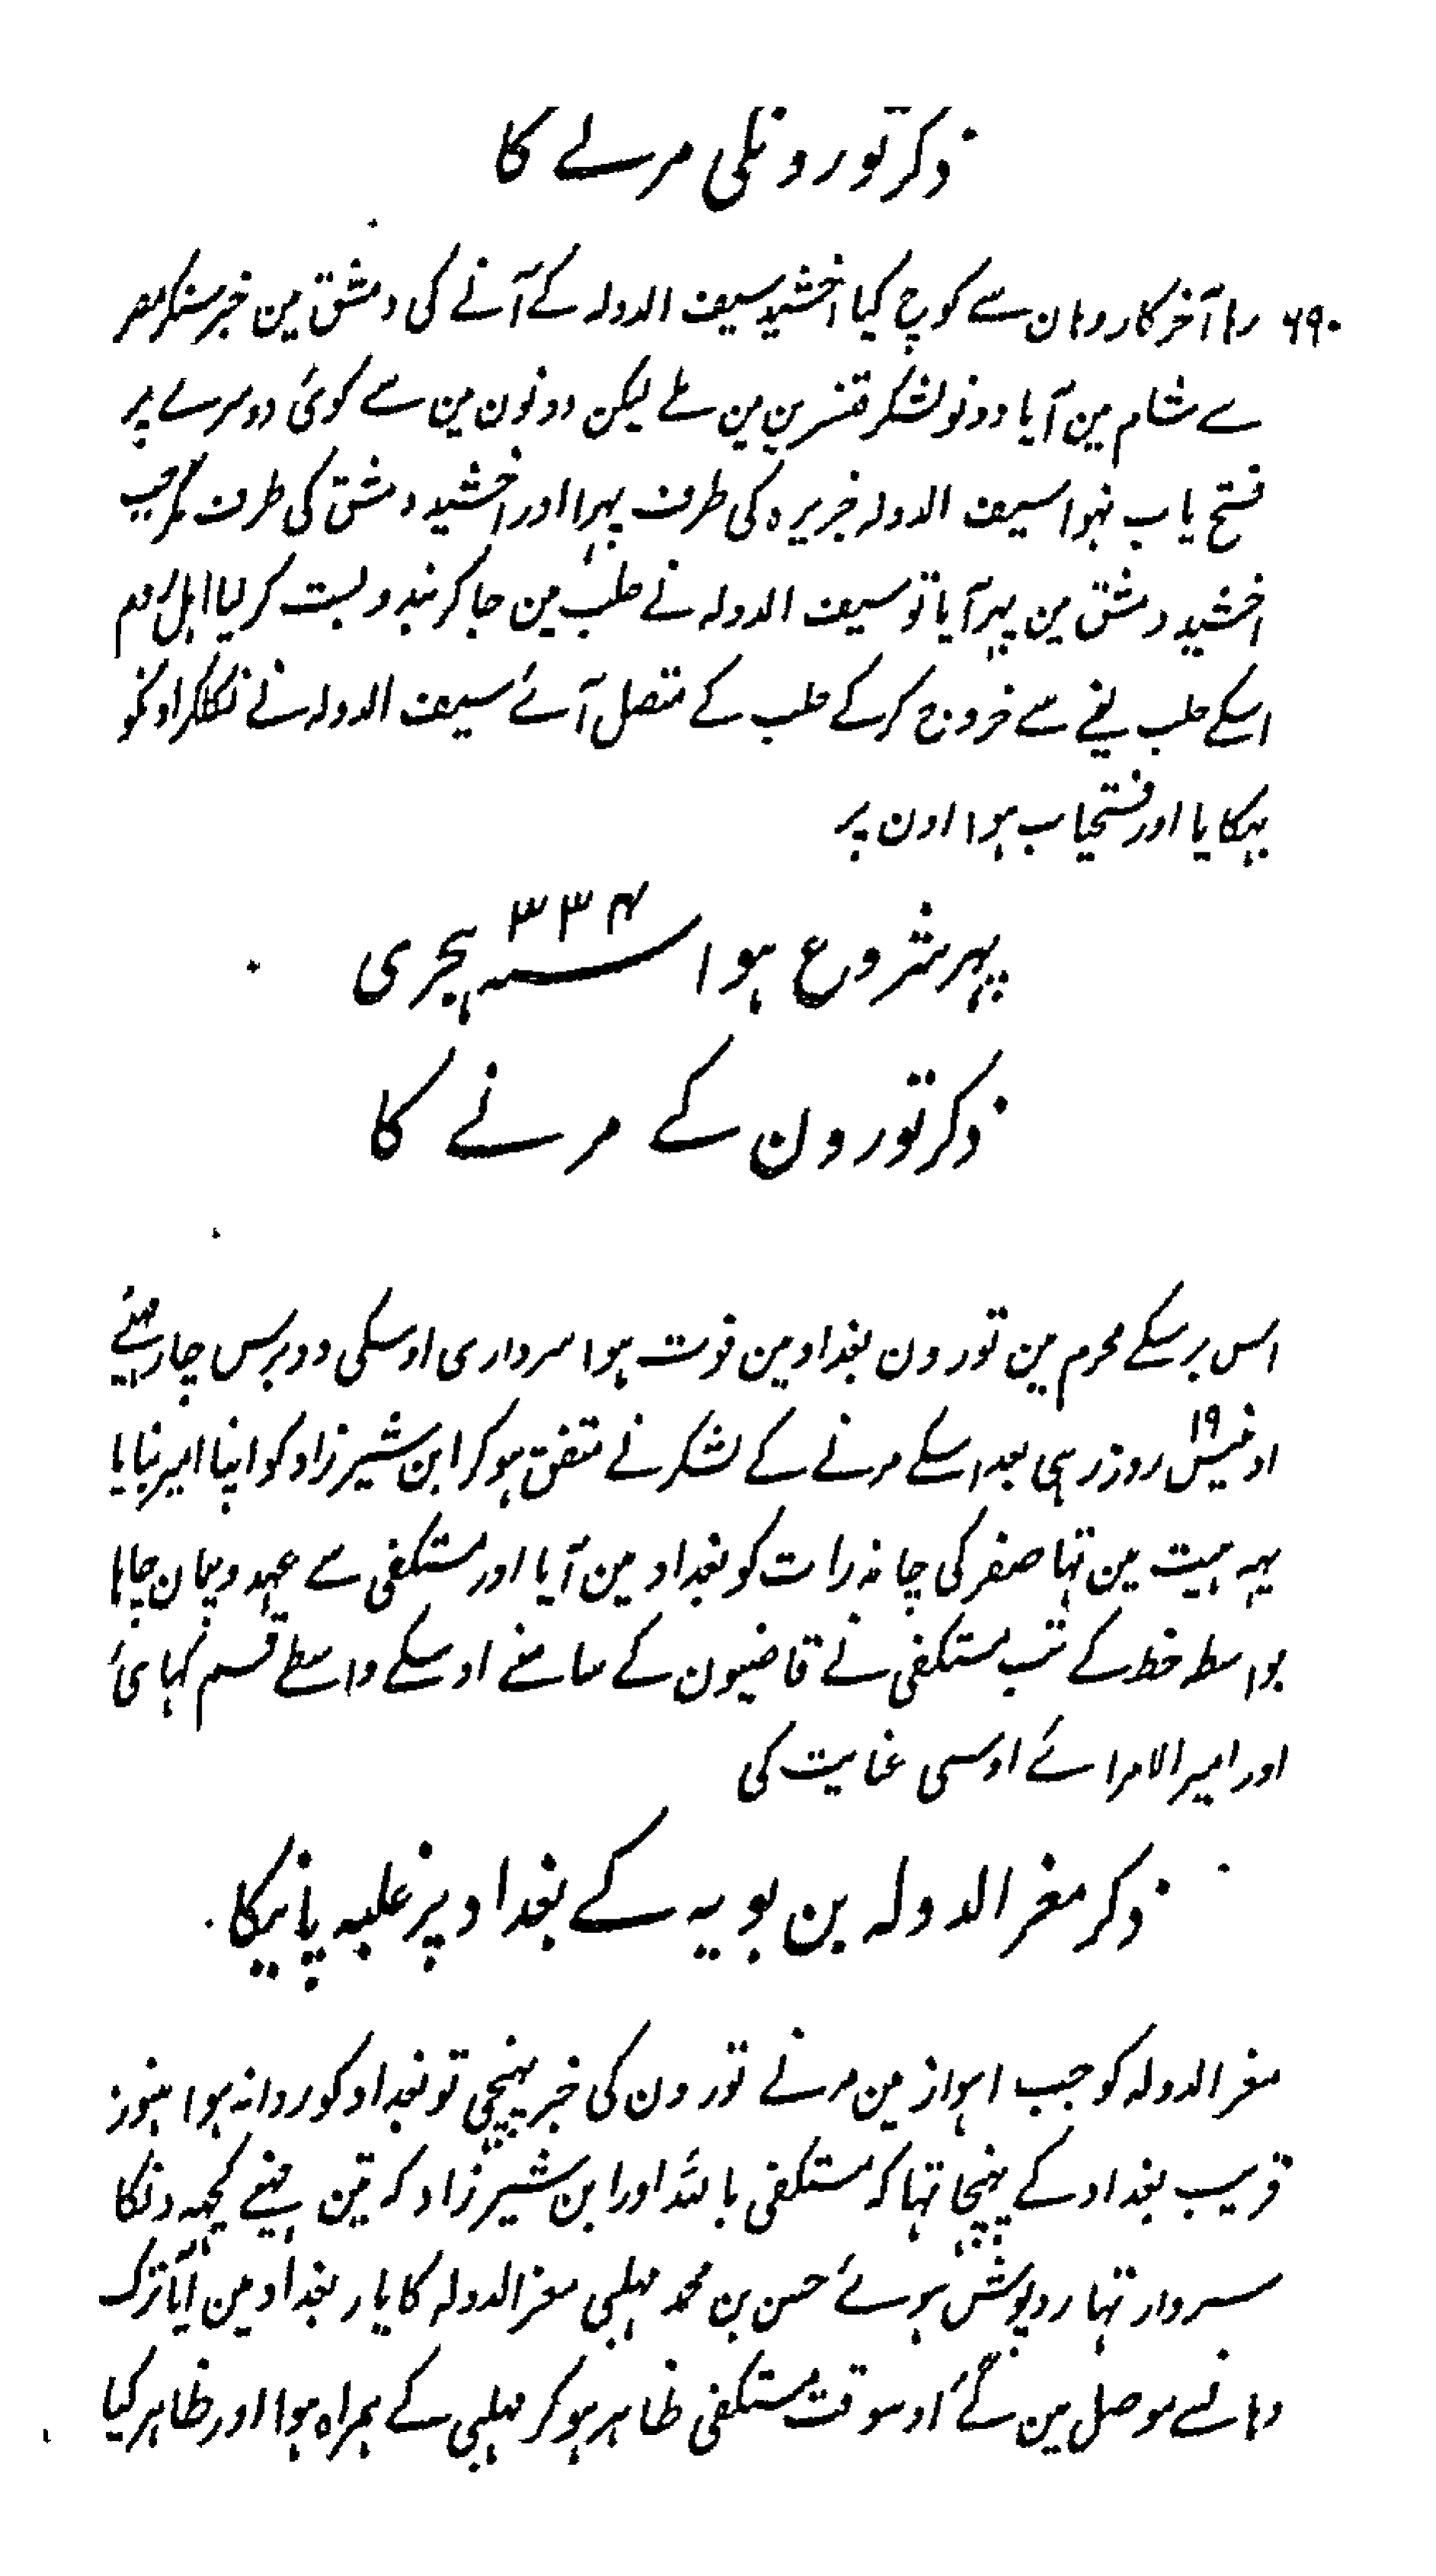 ذکر تورونکی مرنے کا
۶۹۰ رہا آخرکار وہان سے کوچ کیا اخشید سیف الدولہ کے آنے کی دمشق مین خبر سنکر مصر
سے شام مین آیا دونو لشکر قنسرین مین ملے لیکن دونون مین سے کوئی دوسرے پر
فتح یاب نہوا سیف الدولہ جزیرہ کی طرف پہرا اور اخشید دمشق کی طرف مگر جب
اخشید دمشق مین پہر آیا تو سیف الدولہ نے حلب مین جا کر بندوبست کر لیا اہل روم
اسکے حلب لینے سے خروج کرکے حلب کے متصل آئے سیف الدولہ نے نکلکر اونکو
بہکایا اور فتحیاب ہوا اون پر
پہر شروع ہوا سنہ ۳۳۴ ہجری
ذکر تورون کے مرنے کا
اس برسکے محرم مین تورون بغداد مین فوت ہوا سرداری اوسکی دو برس چار مہینے
اونیس ۱۹ روز رہی بعد اسکے مرنے کے لشکر نے متفق ہو کر ابن شیرزاد کو اپنا امیر بنایا
یہہ ہیت مین تہا صفر کی چاند رات کو بغداد مین آیا اور مستکفی سے عہد و پیمان چاہا
بواسطہ خط کے تب مستکفی نے قاضیون کے سامنے اوسکے واسطے قسم کہائی
اور امیر الامرائے اوسی عنایت کی
ذکر معز الدولہ بن بویہ کے بغداد پر غلبہ پانیکا
معز الدولہ کو جب اہواز مین مرنے تورون کی خبر پہنچی تو بغداد کو روانہ ہوا ہنوز
قریب بغداد کے پہنچا تہا کہ مستکفی باللہ اور ابن شیرزاد کہ تین مہینے کچہہ دنکا
سردار تہا روپوش ہوئے حسن بن محمد مہلبی معز الدولہ کا یار بغداد مین آیا ترک
وہانسے موصل مین گئے اوسوقت مستکفی ظاہر ہو کر مہلبی کے ہمراہ ہوا اور ظاہر کیا